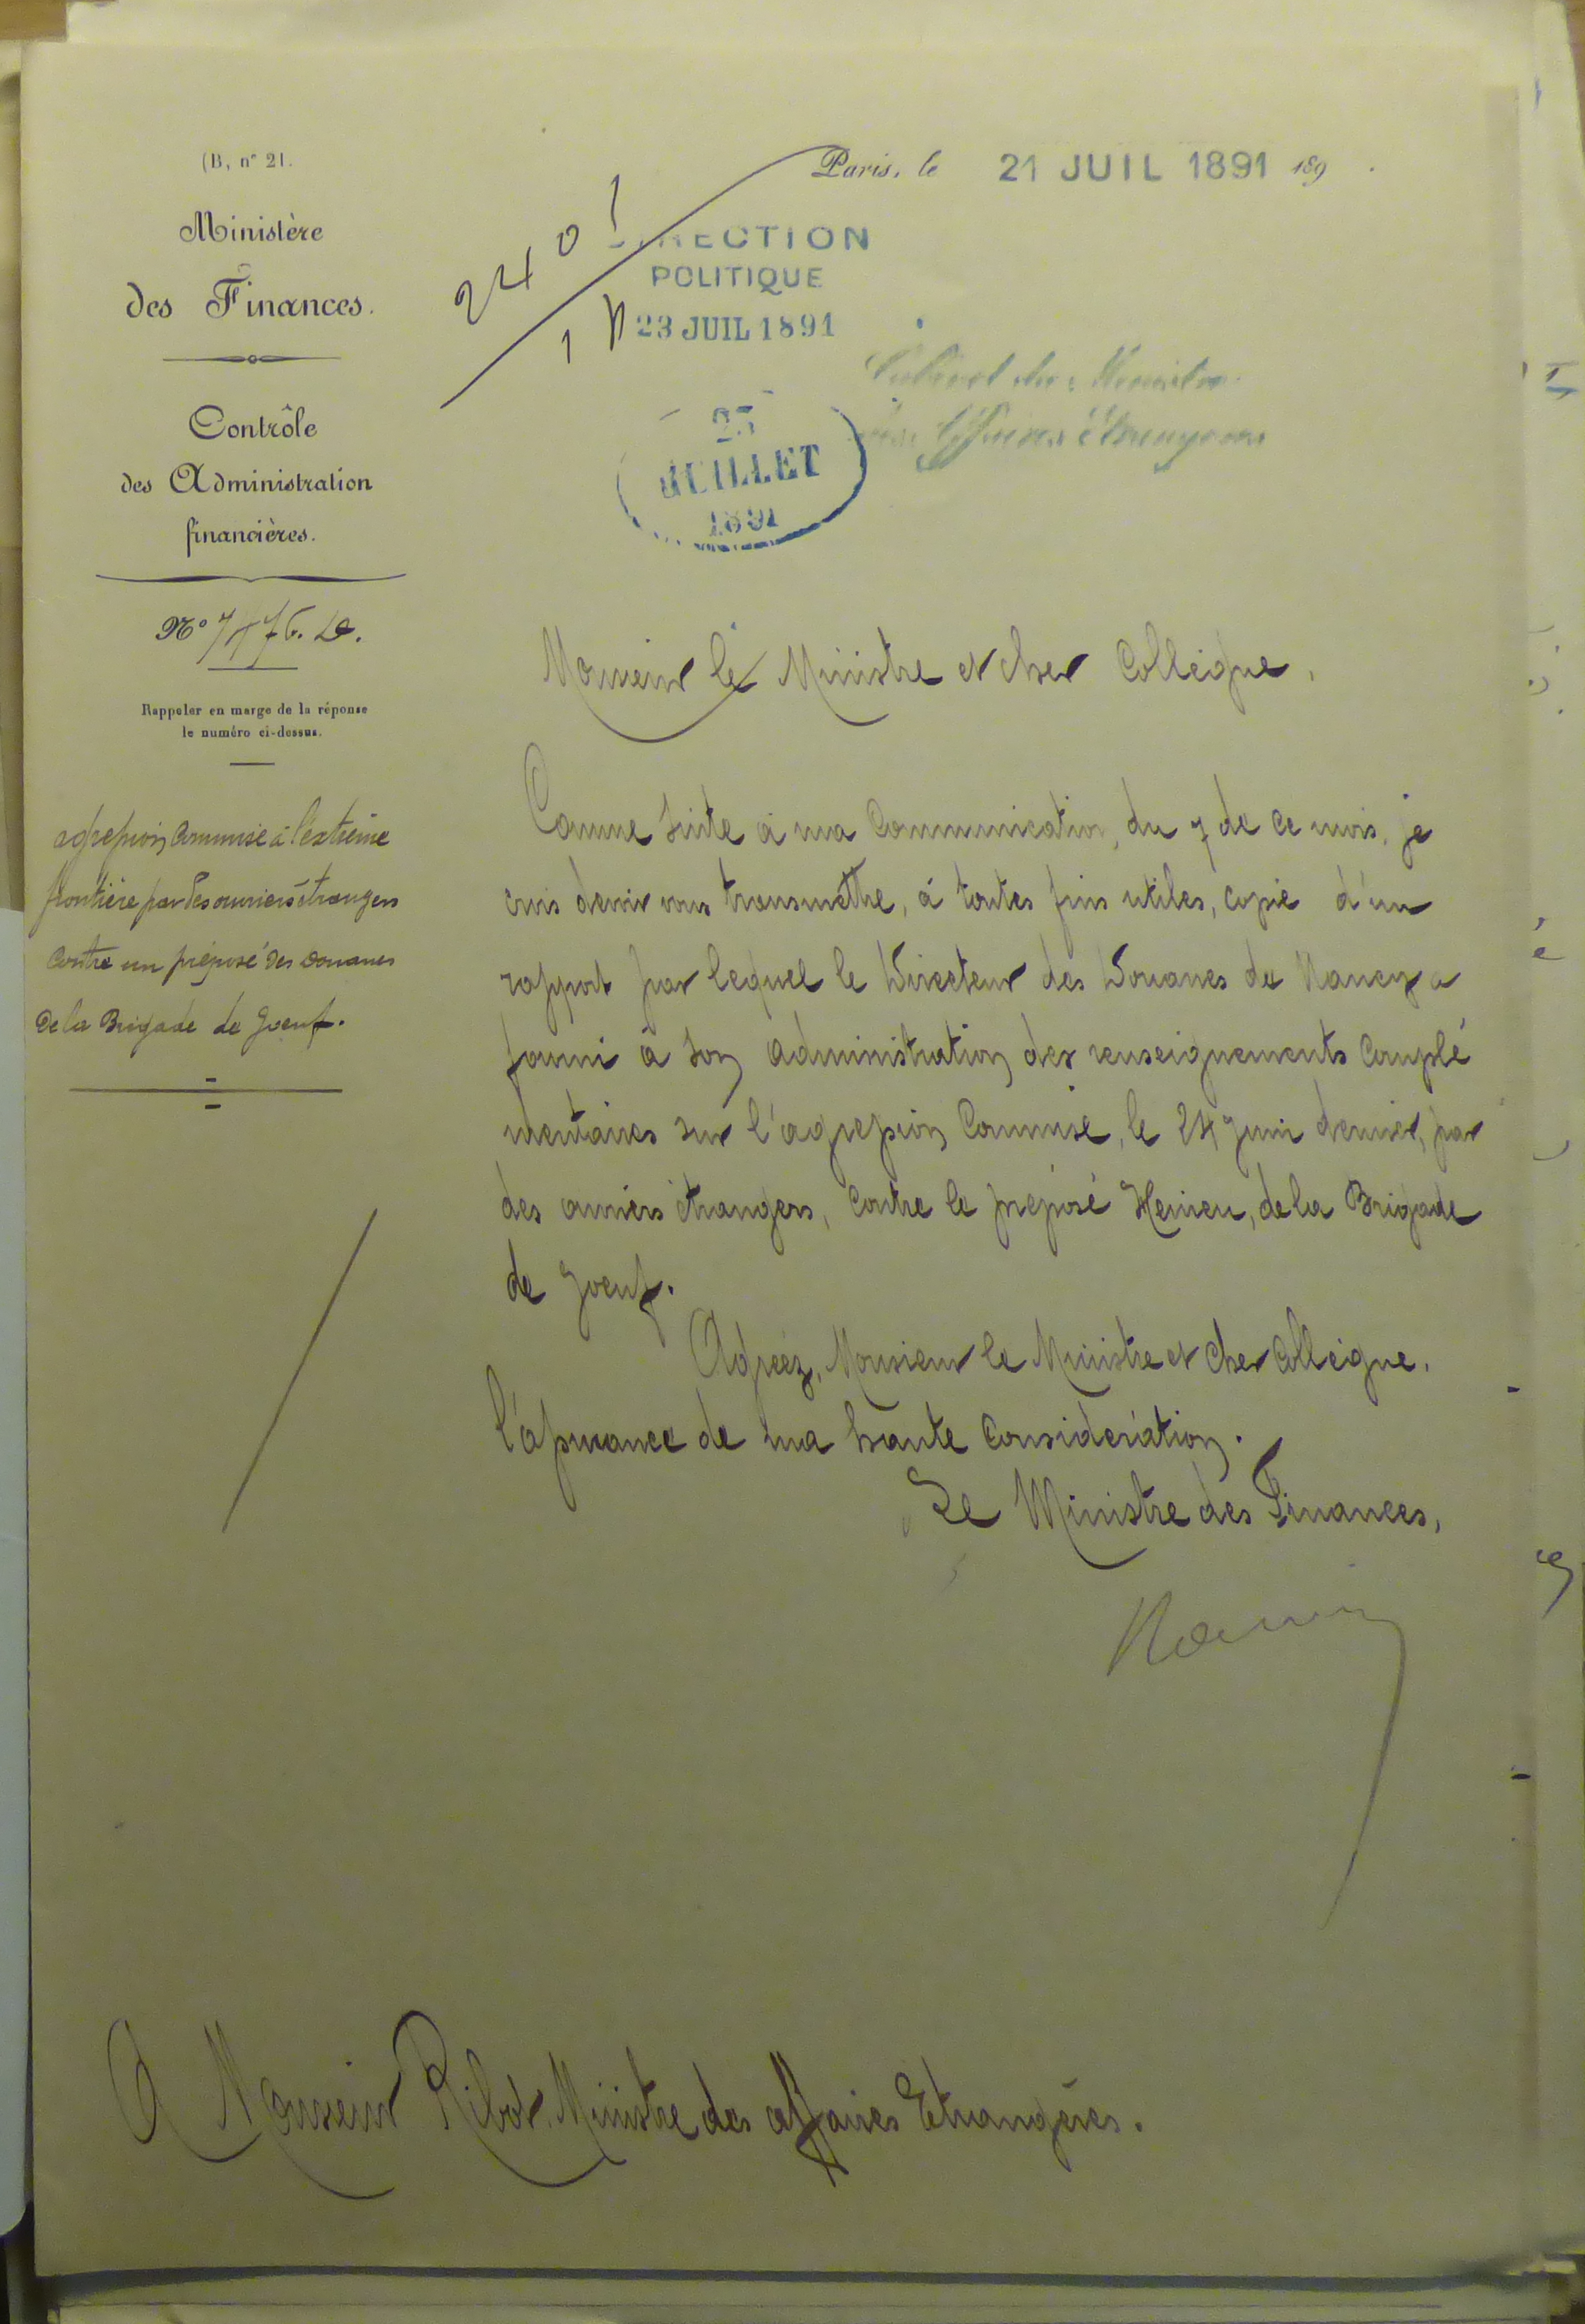 (B, n° 21.
Paris, le 21 JUIL 1891 189 .
Ministère
des Finances.
Contrôle
des Administration
financières.
2401
1
DIRECTION
POLITIQUE
23 JUIL 1891
Cabinet du Ministre
des Affaires Étrangères
23
JUILLET
1891
N°
Rappeler en marge de la réponse
le numéro ci-dessus.
agression commise à l'extrême
frontière par des ouvriers étrangers
contre un préposé des Douanes
de la Brigade de Joeuf.
Monsieur le Ministre et cher Collègue,
Comme suite à ma Communication, du 7 de ce mois, je
crois devoir vous transmettre, à toutes fins utiles, copie d'un
rapport par lequel le Directeur des Douanes de Nancy a
fourni à son administration des renseignements complé
mentaires sur l'agression Commise, le 24 Juin dernier, par
des ouvriers étrangers, contre le préposé, de la Brigade
de Joeuf.
Agréez, Monsieur le Ministre et cher Collègue,
l'assurance de ma haute considération.
Le Ministre des Finances,
A Monsieur Ribot, Ministre des affaires Etrangères.